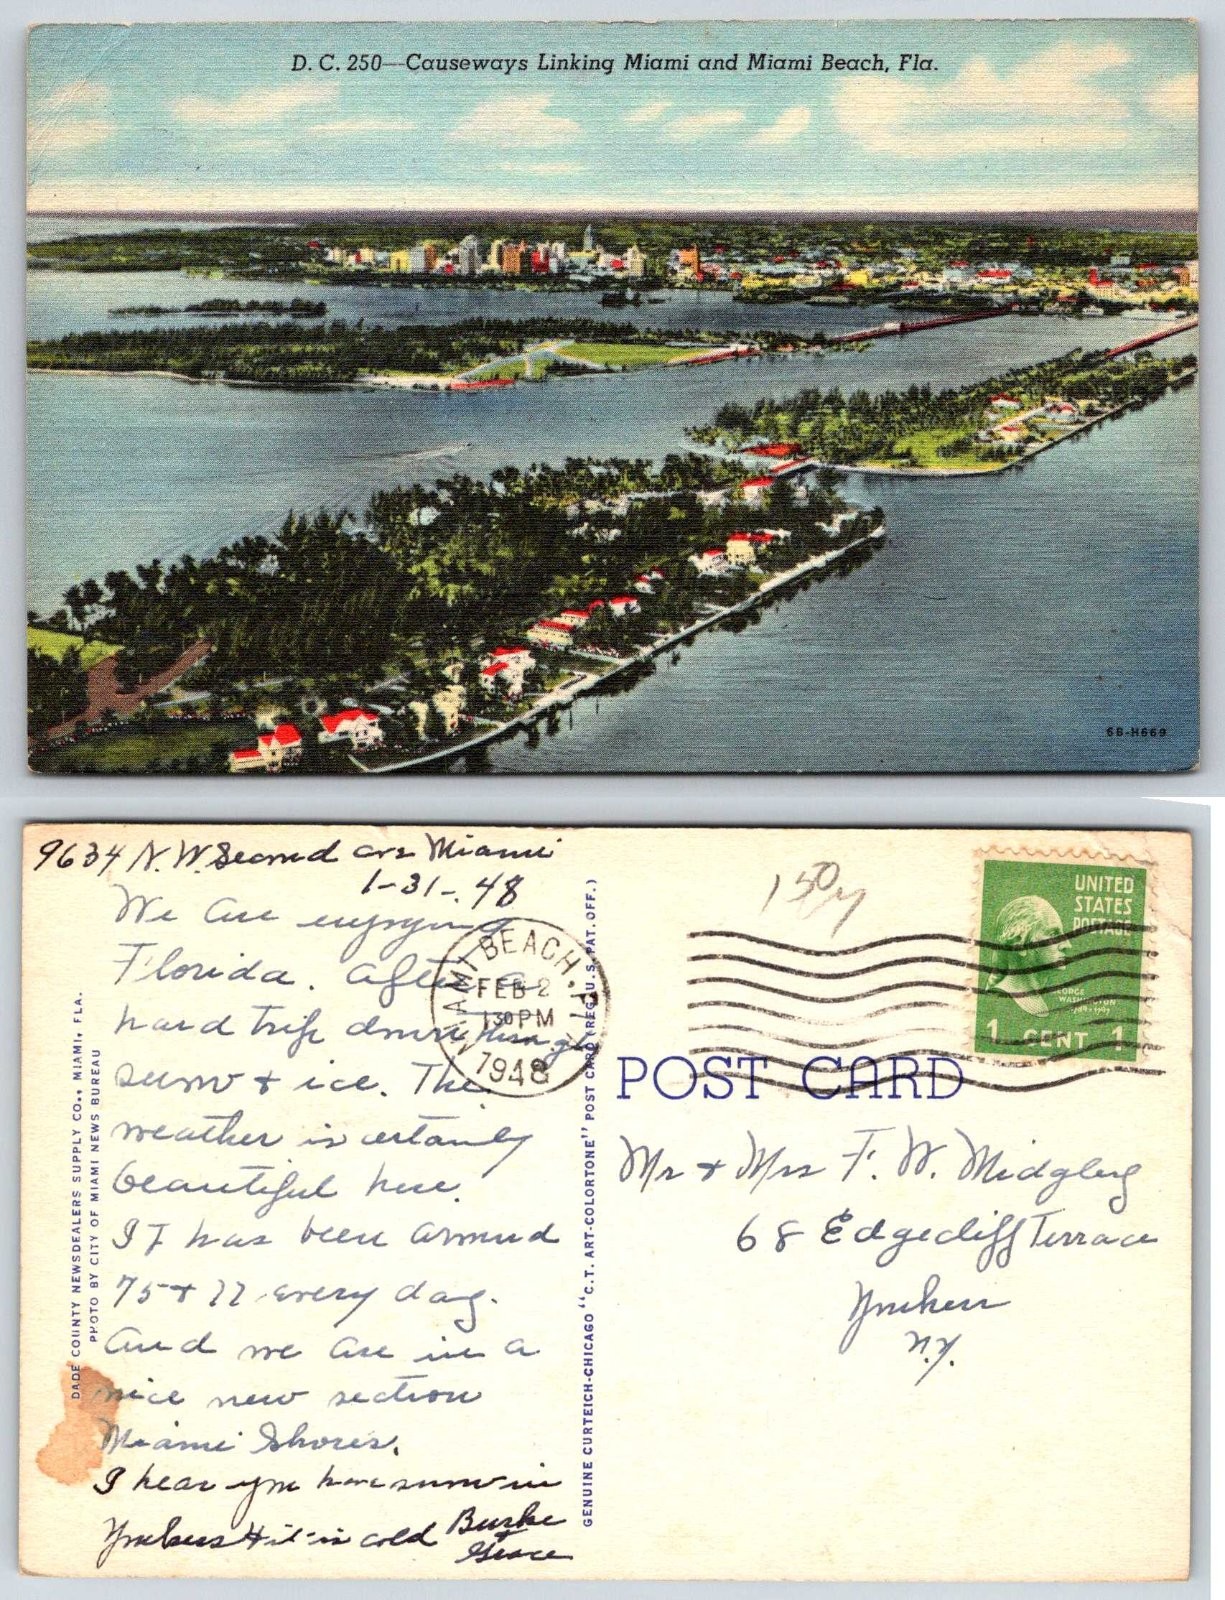 D. C. 250—Causeways Linking Miami and Miami Beach, Fla.
6B-H669
9634 N. W. Second ave Miami
1-31-48
We are enjoying
Florida. After a
hard trip down through
snow + ice. The
weather is certainly
beautiful here.
It has been around
75 + 77 every day.
And we are in a
nice new section
Miami Shores.
I hear you have snow in
Yonkers + it is cold
Burke
+
Grace
DADE COUNTY NEWSDEALERS SUPPLY CO., MIAMI, FLA.
PHOTO BY CITY OF MIAMI NEWS BUREAU
MIAMI BEACH, FLA.
FEB 2
1 30 PM
1948
GENUINE CURTEICH-CHICAGO "C.T. ART-COLORTONE" POST CARD (REG. U.S. PAT. OFF.)
UNITED
STATES
POSTAGE
GEORGE
WASHINGTON
1789-1797
1 CENT 1
POST CARD
Mr + Mrs F. W. Midgley
68 Edgecliff Terrace
Yonkers
N.Y.